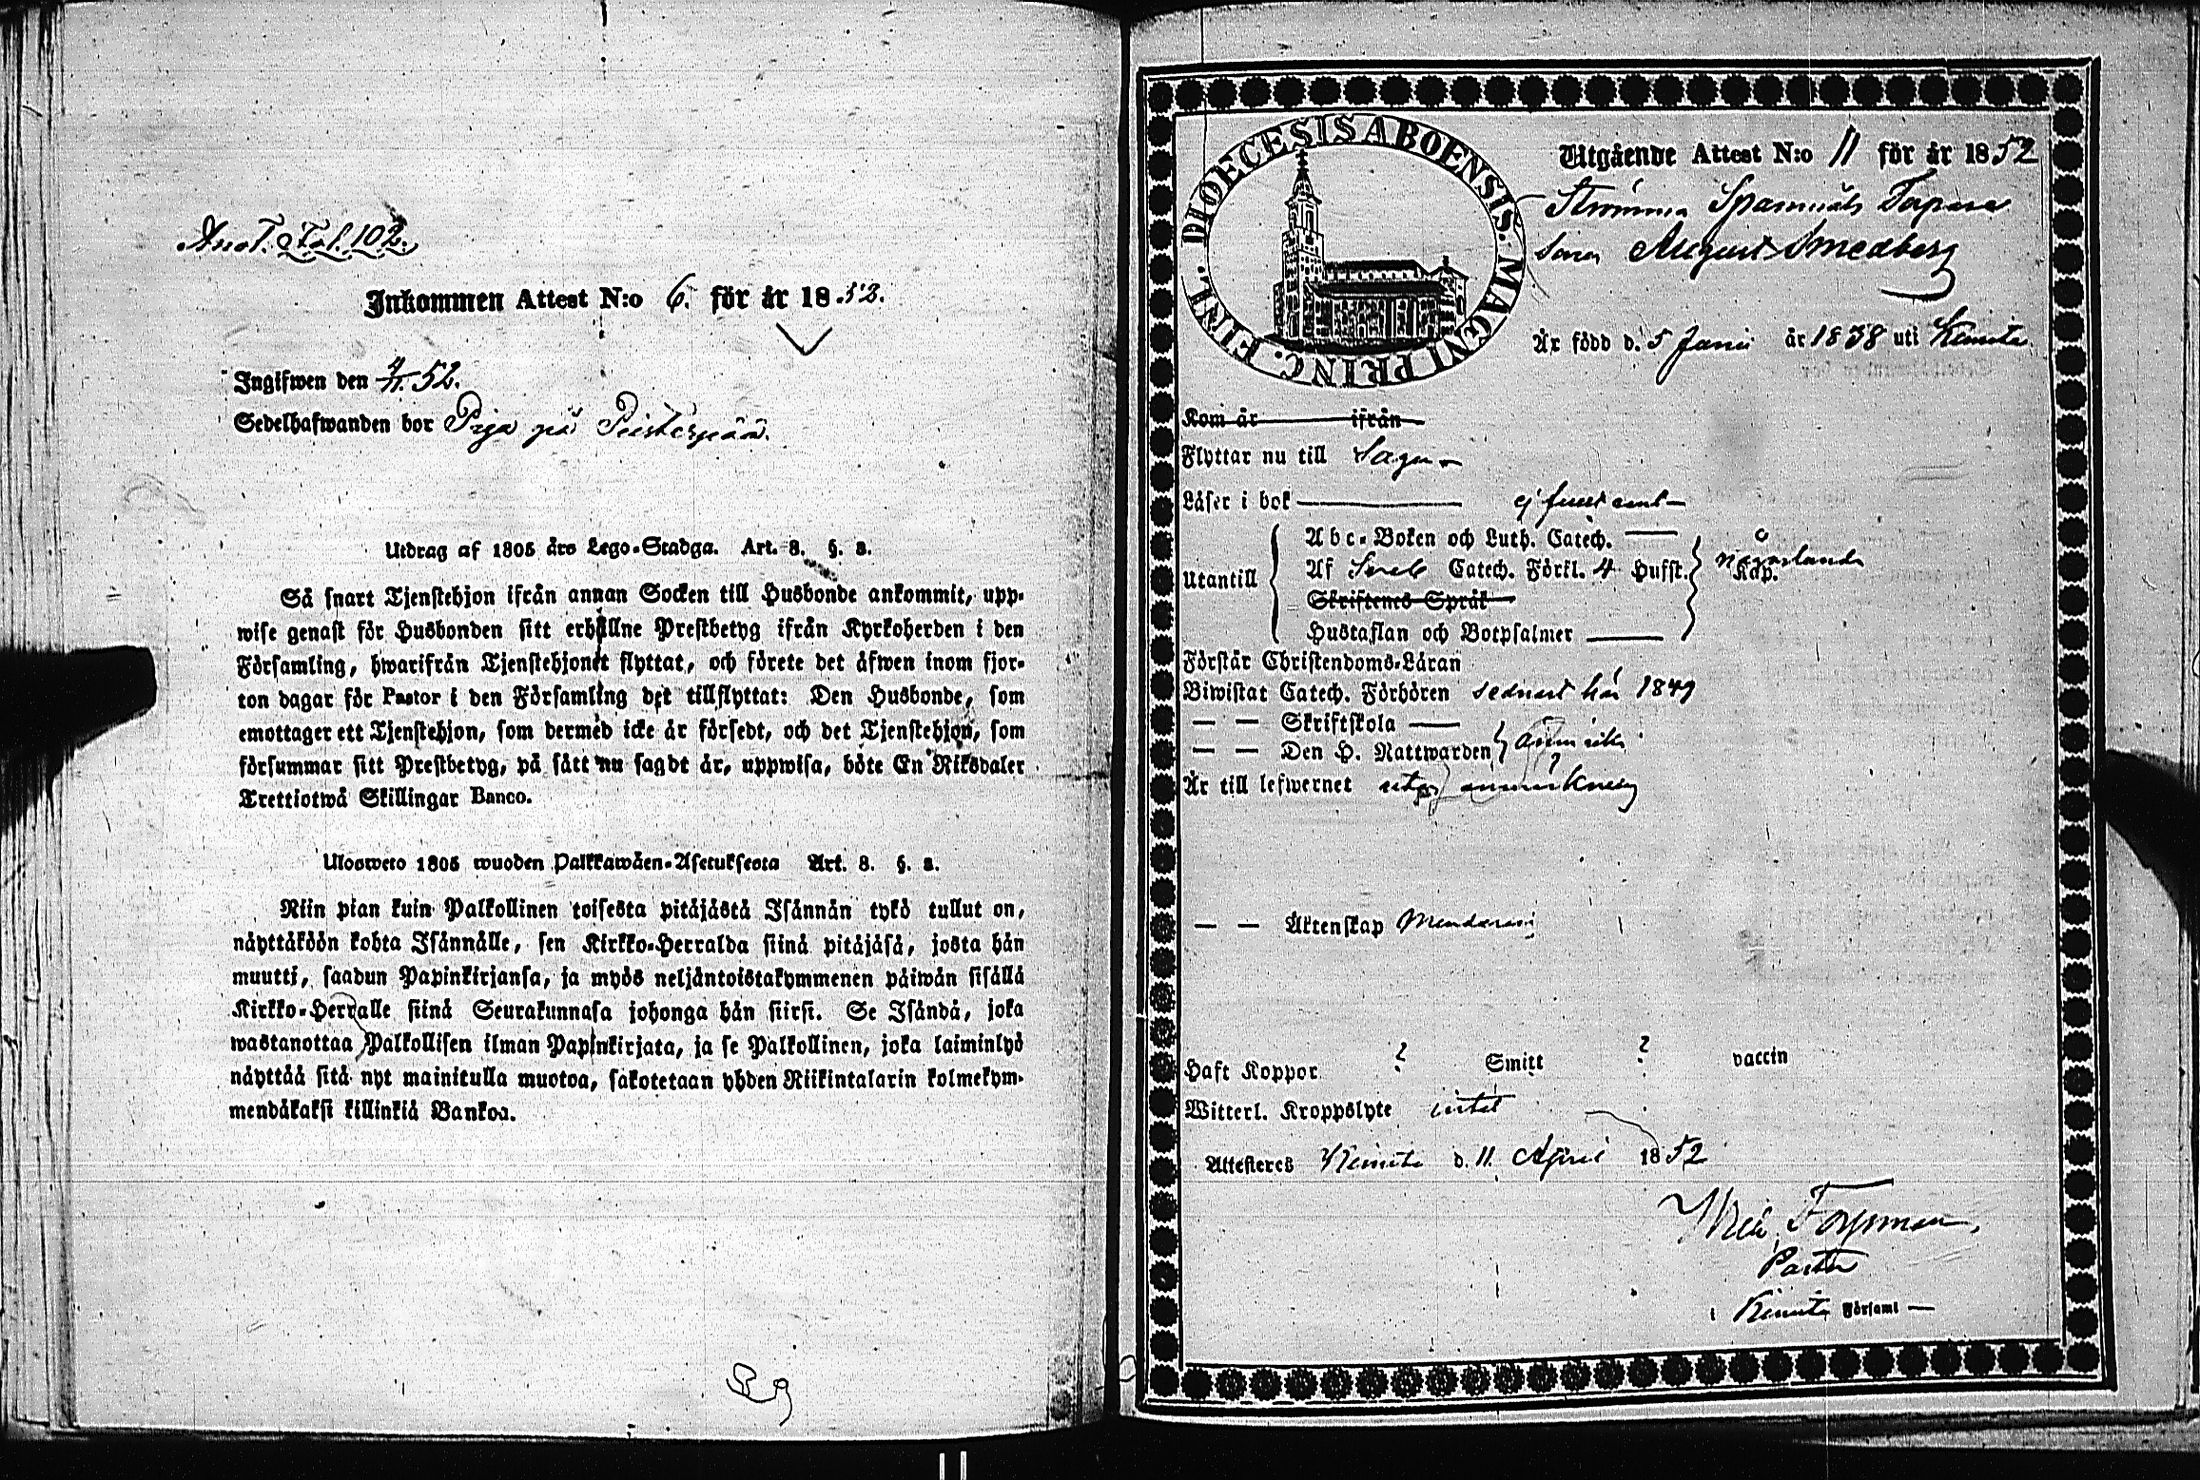 Anot. Fol. 102.
Inkommen Attest N:o 6. för år 18 52.
Ingifwen den 4/11. 52.
Sedelhafwanden bor Piga på
Utdrag af 1805 års Lego-Stadga. Art. 8. §. 2.
Så snart Tjenstehjon ifrån annan Socken till Husbonde ankommit, upp-
wise genast för Husbonden sitt erhållne Prestbetyg ifrån Kyrkoherden i den
Församling, hwarifrån Tjenstehjonet flyttat, och förete det åfwen inom fjor-
ton dagar för Pastor i den Församling det tillflyttat: Den Husbonde, som
emottager ett Tjenstehjon, som dermed icke är försedt, och det Tjenstehjon, som
försummar sitt Prestbetyg, på sätt nu sagdt är, uppwisa, böte En Riksdaler
Trettiotwå Skillingar Banco.
Ulosweto 1805 wuoden Palkkawäen-Asetuksesta Art. 8. §. 2.
Niin pian kuin Palkollinen toisesta pitäjästä Isännän tykö tullut on,
näyttäköön kohta Isännälle, sen Kirkko-Herralda siinä pitäjäsä, josta hän
muutti, saadun Papinkirjansa, ja myös neljäntoistakymmenen päiwän sisällä
Kirkko-Herralle siinä Seurakunnasa johonga hän siirsi. Se Isändä, joka
wastanottaa Palkollisen ilman Papinkirjata, ja se Palkollinen, joka laiminlyö
näyttää sitä nyt mainitulla muotoa, sakotetaan yhden Riikintalarin kolmekym-
mendäkaksi killinkiä Bankoa.
DIOECESIS ABOENSIS. MAGNI PRINC. FINL.
Utgående Attest N:o 11 för år 1852
Strömma Torpare
Sonen August Smedberg
Är född d. 5 Junii år 1838 uti Kimito
Kom år ifrån
Flyttar nu till Sagu
Läser i bok ej
Utantill
Abc-Boken och Luth. Catech.
Af Sveb Catech. Förkl. 4 Hufst. någorlunda Kap.
Skriftenes Språk
Hustaflan och Botpsalmer
Förstår Christendoms-Läran
Biwistat Catech. Förhören sednast här 1849
— — Skriftskola
— — Den H. Nattwarden
Är till lefwernet utan anmärkning
— — Äktenskap
Haft Koppor ? Smitt ? vaccin
Witterl. Kroppslyte intet
Attesteres Kimito d. 11. April 1852
Forsman,
Pastor
i Kimito Församl